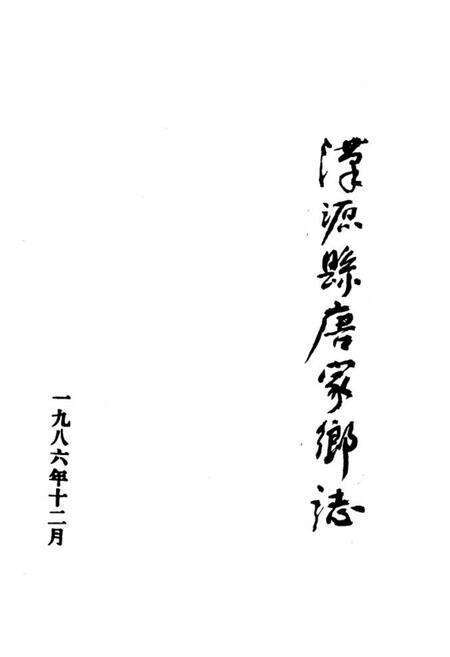 漢源縣唐家鄉誌
一九八六年十二月